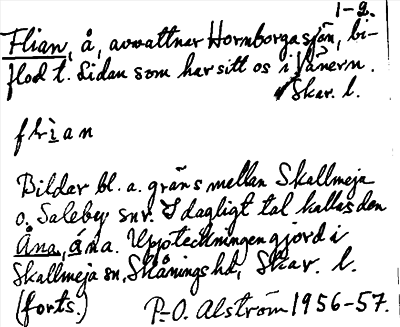 1-2.
Flian, å, avvattnar Hornborgasjön, bi-
flod t. Lidan som har sitt os i Vänern.
Skar. l.
flìan
Bildar bl. a. gräns mellan Skallmeja
o. Saleby snr. I dagligt tal kallas den
Åna, åna. Uppteckningen gjord i
Skallmeja sn, Skånings hd, Skar. l.
(forts.) P.-O. Alström 1956-57.